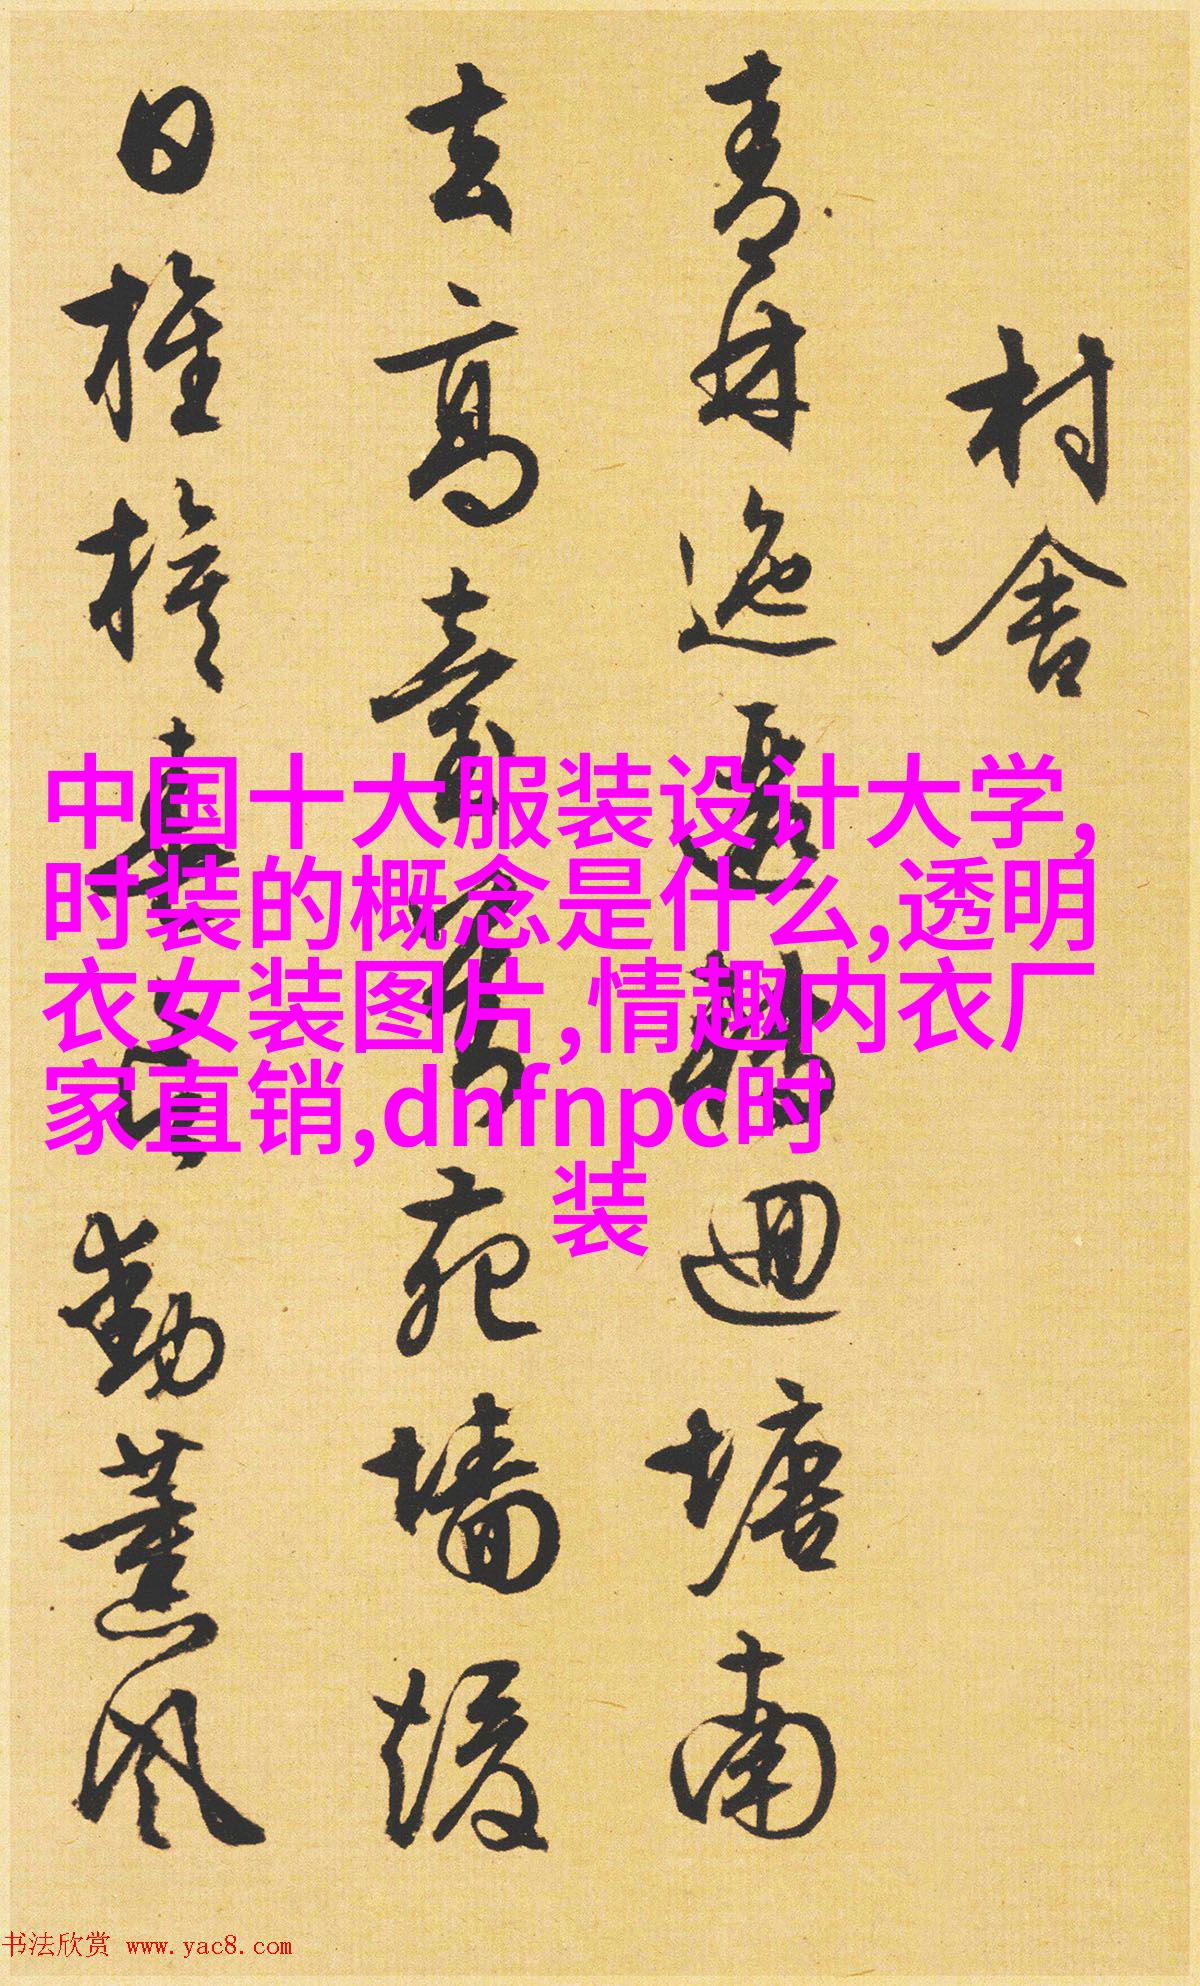 村舍
青林迤邐轉迴塘南
去高臺對苑墙煖
日動薰風
中国十大服装设计大学,
时装的概念是什么,透明
衣女装图片,情趣内衣厂
家直销,dnfnpc时
装
书法欣赏 www.yac8.com